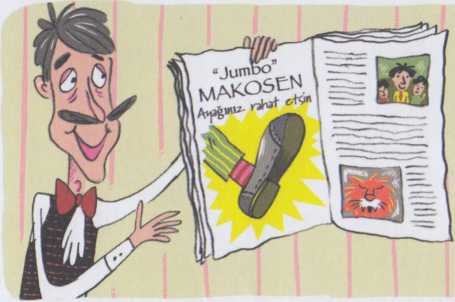 "Jumbo"
MAKOSEN
Ayağınız rahat etsin